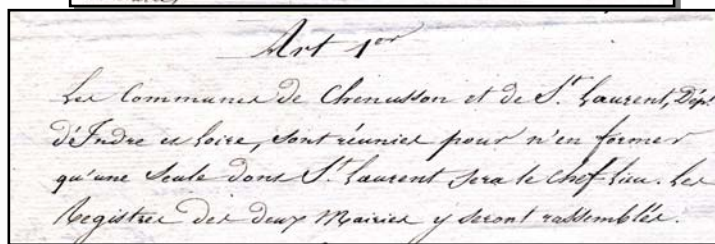 Art 1er
Les Communes de Chenusson et de St. Laurent, Dépt.
d'Indre et Loire, sont réunies pour n'en former
qu'une seule dont St. Laurent sera le chef lieu. Les
Registres des deux Mairies y seront rassemblés.